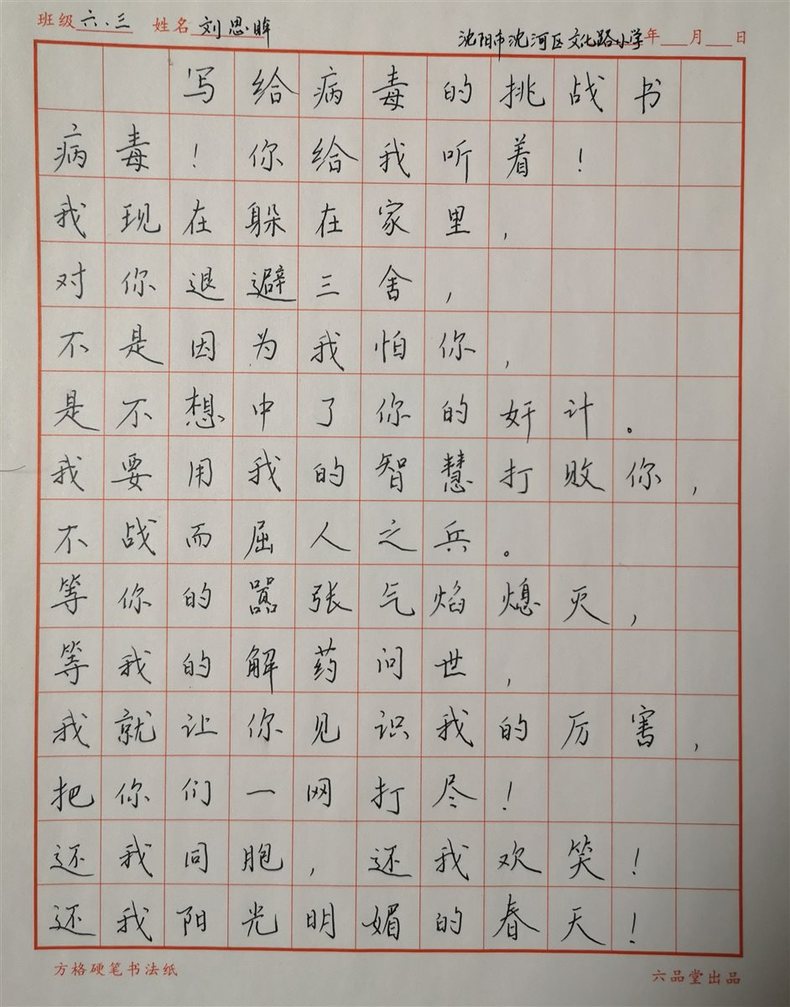 班级 六.三 姓名 刘思眸 沈阳市沈河区文化路小学 年 月 日
写给病毒的挑战书
病毒！你给我听着！
我现在躲在家里，
对你退避三舍，
不是因为我怕你，
是不想中了你的奸计。
我要用我的智慧打败你，
不战而屈人之兵。
等你的嚣张气焰熄灭，
等我的解药问世，
我就让你见识我的厉害，
把你们一网打尽！
还我同胞，还我欢笑！
还我阳光明媚的春天！
方格硬笔书法纸 六品堂出品